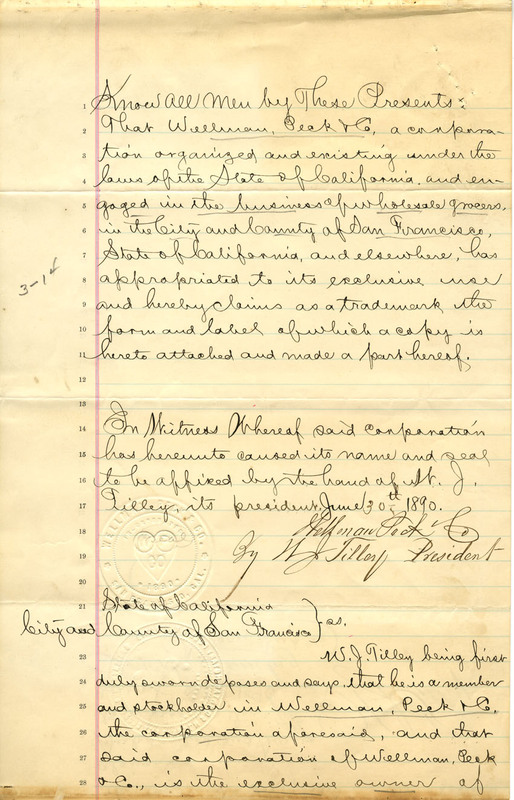 1 Know All Men by These Presents:
2 That Wellman, Peck & Co, a corpora-
3 tion organized and existing under the
4 laws of the State of California, and en-
5 gaged in the business of wholesale grocers,
6 in the City and County of San Francisco,
7 State of California, and elsewhere, has
8 appropriated to its exclusive use
9 and hereby claims as a trademark the
10 form and label of which a copy is
11 hereto attached and made a part hereof.
12
13
14 In Witness Whereof said corporation
15 has hereunto caused its name and seal
16 to be affixed by the hand of W. J.
17 Tilley, its president, June 30th 1890.
18 Wellman Peck & Co
19 By W J Tilley President
20
21 State of California
City and County of San Francisco } ss.
23 W. J. Tilley being first
24 duly sworn deposes and says, that he is a member
25 and stockholder in Wellman, Peck & Co.
26 the corporation aforesaid, and that
27 said corporation of Wellman, Peck
28 & Co., is the exclusive owner of
3-14